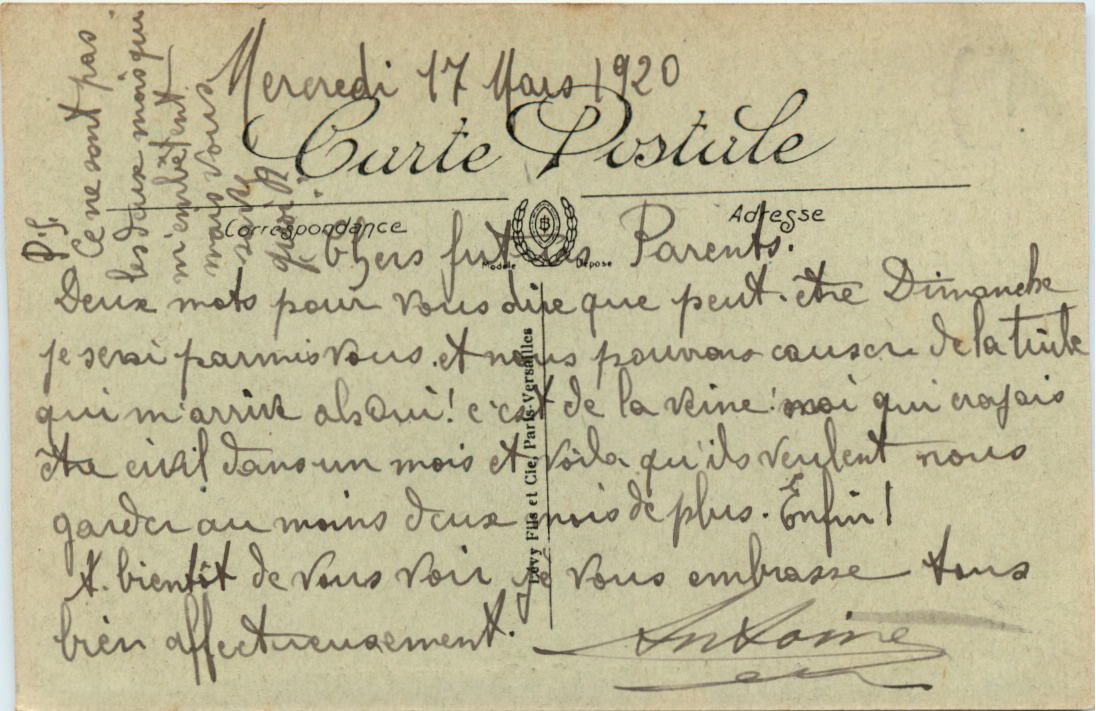 Mercredi 17 Mars 1920
Carte Postale
Correspondance
Adresse
Modèle Déposé
Chers futurs Parents.
Deux mots pour vous dire que peut-être Dimanche
je serai parmis vous. et nous pouvons causer de la tuile
qui m'arrive ah Oui! c'est de la veine! moi qui crayais
être civil dans un mois et voila qu'ils veulent nous
garder au moins deux mois de plus. Enfin!
A. bientôt de vous voir je vous embrasse tous
bien affectueusement.
Antoine
P.S.
Ce ne sont pas
les deux mois qui
m'embêtent
mais vous
quoi!
Lévy Fils et Cie, Paris-Versailles